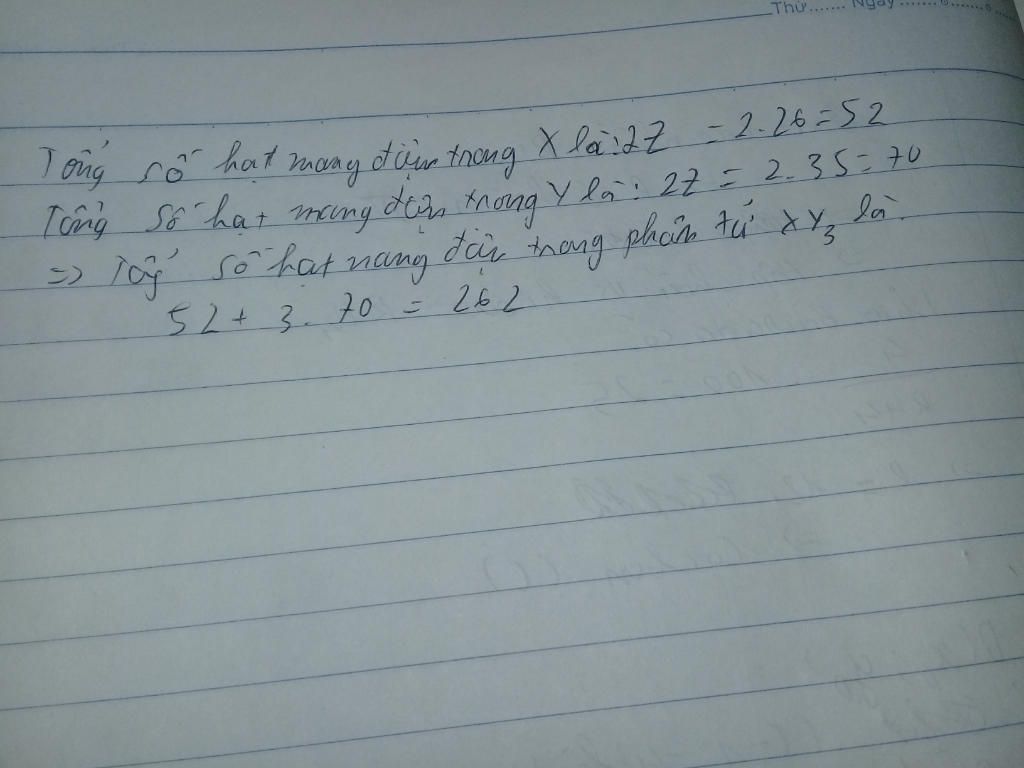 Thứ....... Ngày..............
Tổng số hạt mang điện trong X là: 2Z = 2.26 = 52
Tổng số hạt mang điện trong Y là: 2Z = 2.35 = 70
=> Tổg số hạt mang điện trong phân tử XY3 là.
52 + 3. 70 = 262